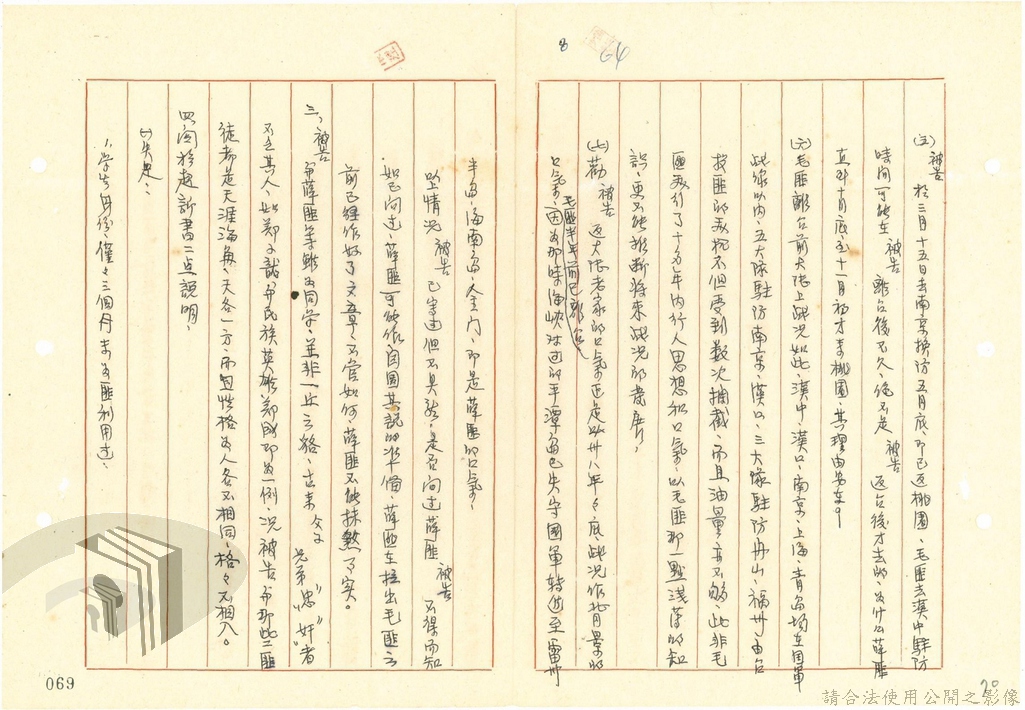 8
64
被告
(五) 於三月十五日去南京換防五月底即已返桃園、毛匪去漢中駐防
時間可能在被告離台後不久、絕不是被告返台後才去的、為什么薛匪
直到十月底、至十一月初才來桃園、其理由安在?
(六)毛匪離台前大陸上战況如此、漢中、漢口、南京、上海、青島均在国軍
此線以內、五大隊駐防南京、漢口、三大隊駐防舟山、福州、由台
投匪的飛机不但要受到数次捕截、而且油量亦不够、此非毛
匪飛行了十多年內行人思想和口氣、以毛匪那一點浅薄的知
識、更不能推断將來战况的发展、
(七)勸被告返大陸老家的口氣正是以卅八年年底战況作背景的
口氣、因為那時海峡对过的平潭島已失守國軍轉進至雷州
毛匪半年前已離台
半島、海南島、金門、即是薛匪的口氣、
以上情况被告已寫过但不具体、是否问过薛匪被告不得而知
如已问过、薛匪可能作自圓其說的準備、薛匪在拉出毛匪之
前已經作好了文章、不管如何、薛匪不能抹煞了事實。
三、被告和薛匪等雖為同学、並非一丘之貉、古來父子兄弟"忠""奸"者
不乏其人、如鄭芝龍和民族英雄鄭成功為一例、况被告和那些匪
徒都是天涯海角、天各一方、而且性格為人各不相同、格格不相入。
四、阅於起訴書二点說明、
(一)失足:
1、学生身份、僅僅三個月未為匪利用过、
069
70
請合法使用公開之影像